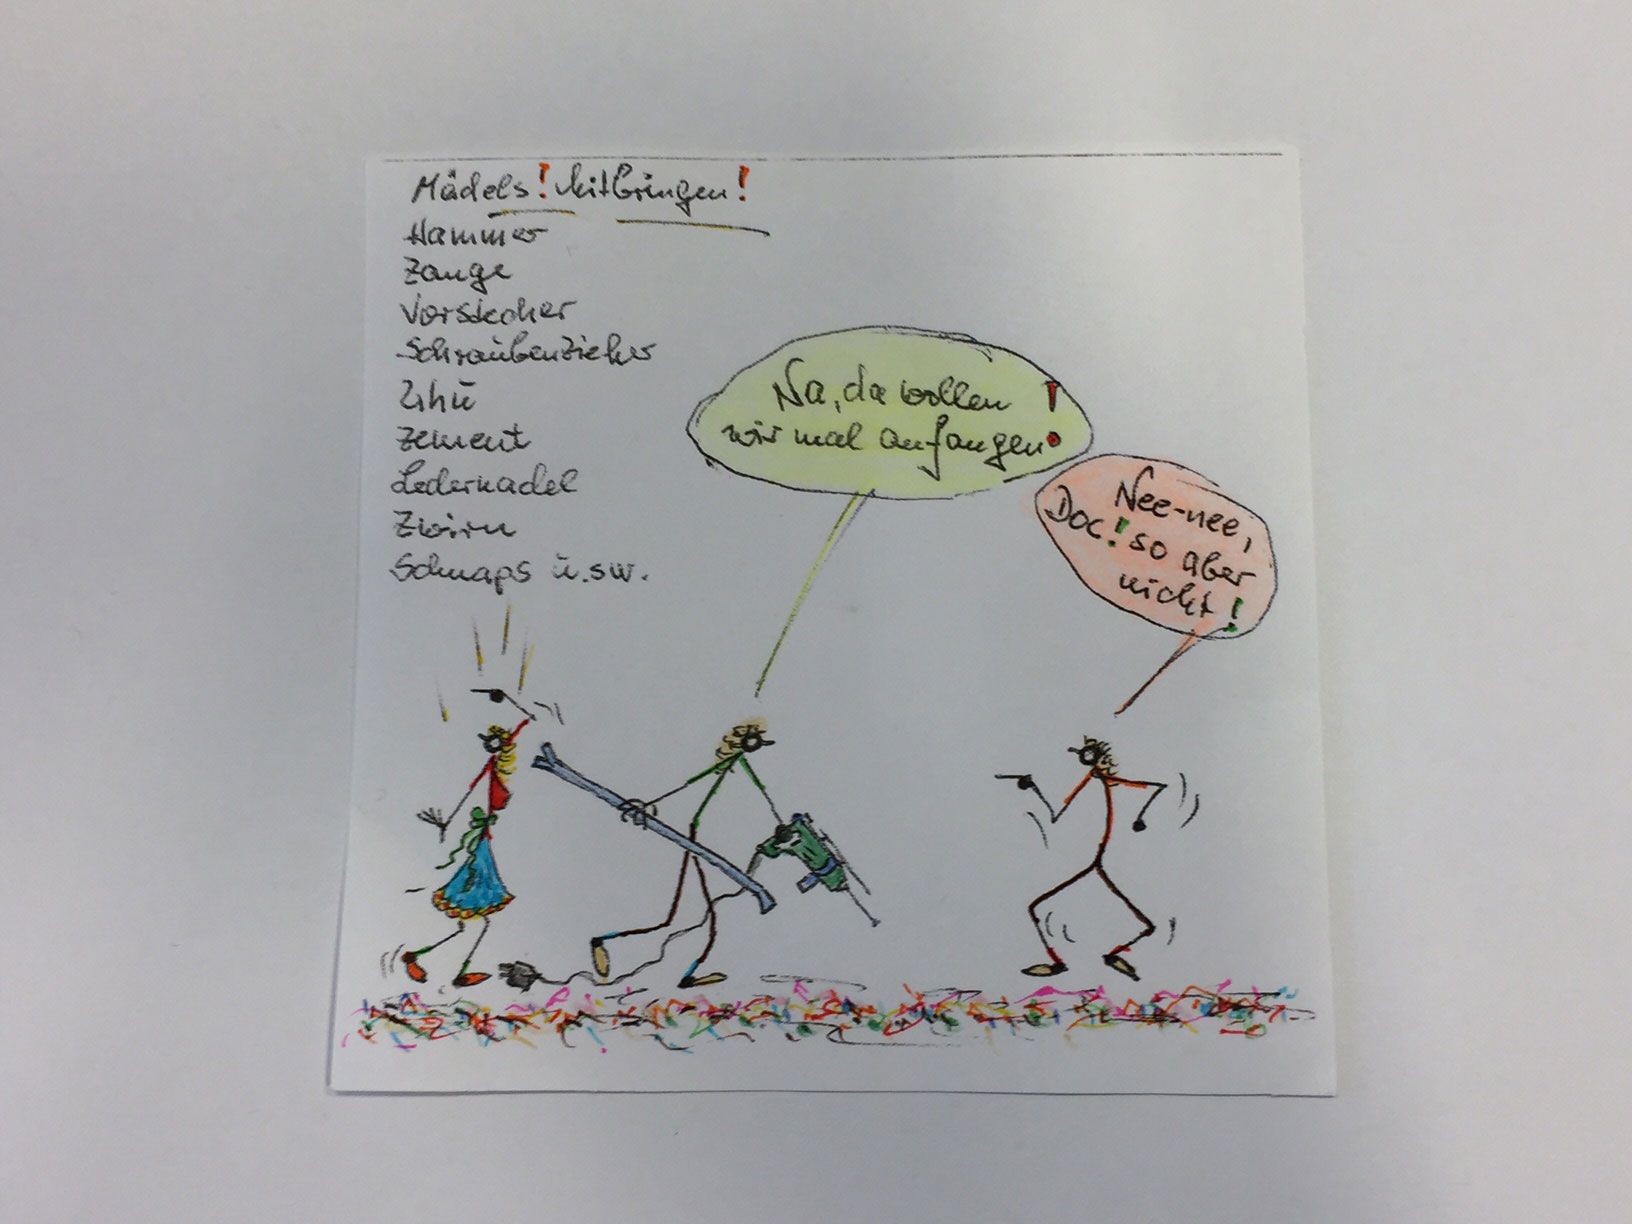 Mädels! Mitbringen!
Hammer
Zange
Vorstecher
Schraubenzieher
Uhu
Zement
Ledernadel
Zwirn
Schnaps u.sw.
Na, da wollen
wir mal anfangen!
Nee-nee,
Doc! so aber
nicht!